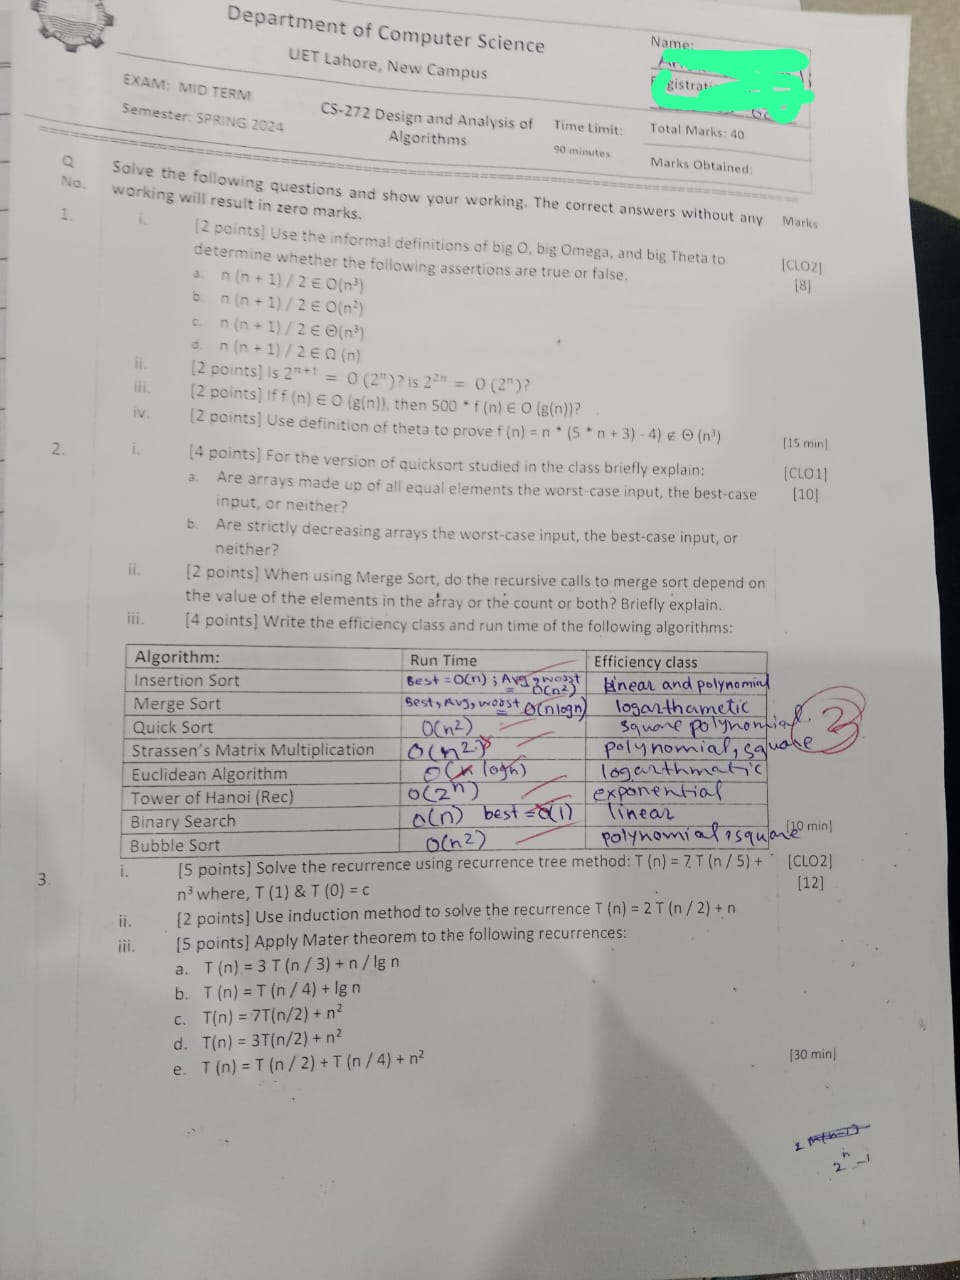 Department of Computer Science
UET Lahore, New Campus
Name:
EXAM: MID TERM
Semester: SPRING 2024
CS-272 Design and Analysis of
Algorithms
Time Limit:
90 minutes
Total Marks: 40
Marks Obtained:
Q
No.
Solve the following questions and show your working. The correct answers without any
working will result in zero marks.
Marks
1.
i. [2 points] Use the informal definitions of big O, big Omega, and big Theta to
determine whether the following assertions are true or false.
[CLO2]
[8]
a. n (n + 1) / 2 ∈ O(n³)
b. n (n + 1) / 2 ∈ O(n²)
c. n (n + 1) / 2 ∈ Θ(n³)
d. n (n + 1) / 2 ∈ Ω (n)
ii. [2 points] Is 2ⁿ⁺¹ = O (2ⁿ)? Is 2²ⁿ = O (2ⁿ)?
iii. [2 points] If f (n) ∈ O (g(n)), then 500 * f (n) ∈ O (g(n))?
iv. [2 points] Use definition of theta to prove f (n) = n * (5 * n + 3) - 4) ∉ Θ (n³)
[15 min]
2.
i. [4 points] For the version of quicksort studied in the class briefly explain:
[CLO1]
[10]
a. Are arrays made up of all equal elements the worst-case input, the best-case
input, or neither?
b. Are strictly decreasing arrays the worst-case input, the best-case input, or
neither?
ii. [2 points] When using Merge Sort, do the recursive calls to merge sort depend on
the value of the elements in the array or the count or both? Briefly explain.
iii. [4 points] Write the efficiency class and run time of the following algorithms:
Algorithm: Run Time Efficiency class
Insertion Sort Best = O(n) ; Avg, worst = O(n2) linear and polynomial
Merge Sort Best, Avg, worst = O(nlogn) logarthametic
Quick Sort O(n2) square polynomial.
3
Strassen's Matrix Multiplication O(n2. polynomial, square
Euclidean Algorithm O( logn) logarthmatic
Tower of Hanoi (Rec) O(2n) exponential
Binary Search O(n) best = O(1) linear
Bubble Sort O(n2) polynomial, square
[10 min]
3.
i. [5 points] Solve the recurrence using recurrence tree method: T (n) = 7 T (n / 5) +
n³ where, T (1) & T (0) = c
[CLO2]
[12]
ii. [2 points] Use induction method to solve the recurrence T (n) = 2 T (n / 2) + n
iii. [5 points] Apply Mater theorem to the following recurrences:
a. T (n) = 3 T (n / 3) + n / lg n
b. T (n) = T (n / 4) + lg n
c. T(n) = 7T(n/2) + n²
d. T(n) = 3T(n/2) + n²
e. T (n) = T (n / 2) + T (n / 4) + n²
[30 min]
2ⁿ-1